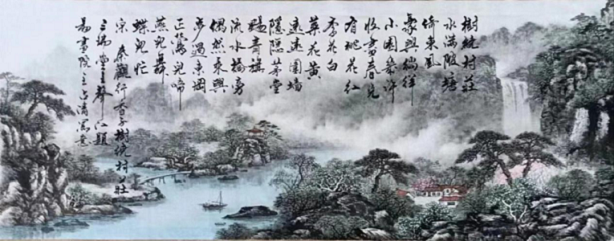 樹繞村莊
水滿陂塘
倚東風
豪興徜徉
小園幾許
收盡春光
有桃花紅
李花白
菜花黃
遠遠圍墻
隱隱茅堂
颺青旗
流水橋旁
偶然乘興
步過東岡
正鶯兒啼
燕兒舞
蝶兒忙
宋 秦觀行香子樹繞村莊